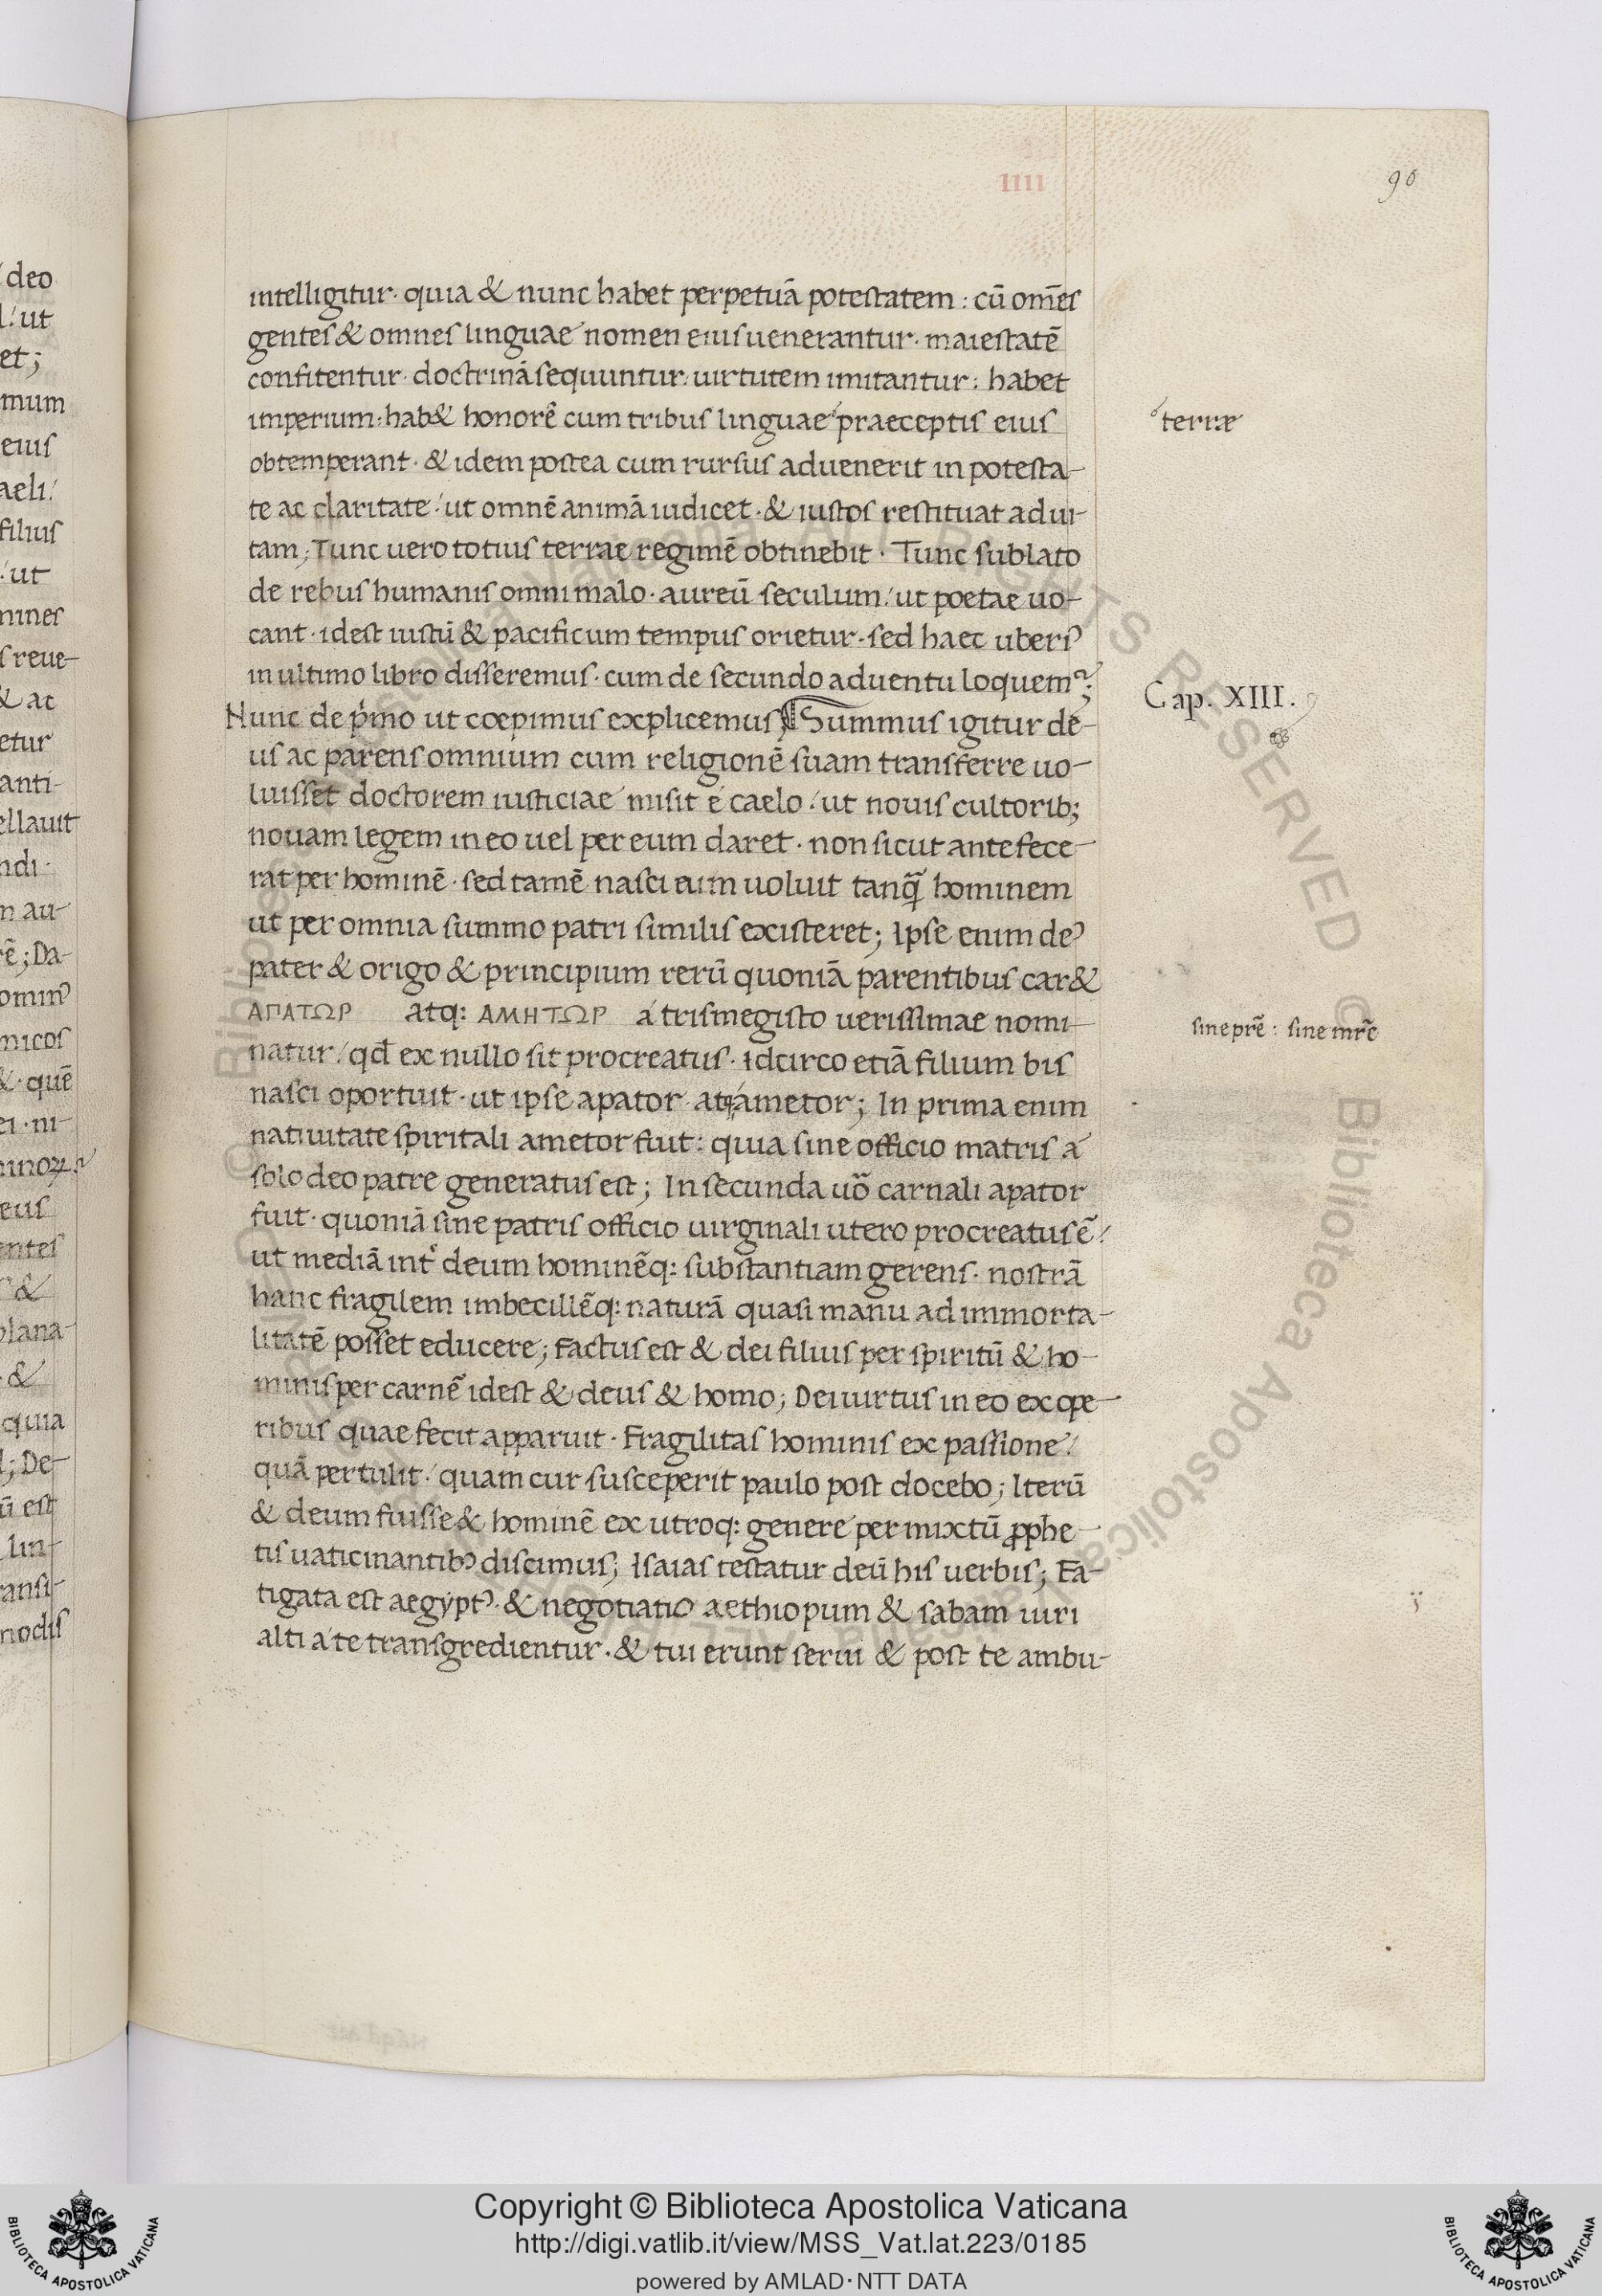 IIII
90
intelligitur· quia & nunc habet perpetuā potestatem : cū om̄es
gentes & omnes linguae nomen eius uenerantur· maiestatē
confitentur· doctrinā sequuntur· uirtutem imitantur : habet
imperium : hab& honorē cum tribus linguae praeceptis eius
terræ
obtemperant· & idem postea cum rursus aduenerit in potesta-
te ac claritate / ut omnē animā iudicet· & iustos restituat ad ui-
tam; Tunc uero totius terrae regimē obtinebit· Tunc sublato
de rebus humanis omni malo· aureū seculum / ut poetae uo-
cant· idest iustū & pacificum tempus orietur· sed haec uberiꝰ
in ultimo libro disseremus· cum de secundo aduentu loquem᷑;
Cap. XIII.
Nunc de p̍mo ut coepimus explicemus; ¶Summus igitur de-
us ac parens omnium cum religionē suam transferre uo-
luisset doctorem iusticiae misit é caelo / ut nouis cultorib;
nouam legem in eo uel per eum daret· non sicut ante fece-
rat per hominē· sed tamē nasci eum uoluit tanq̄ hominem
ut per omnia summo patri similis existeret; Ipse enim deꝰ
pater & origo & principium rerū quoniā parentibus car&
ΑΠΑΤΩΡ atq: ΑΜΗΤΩΡ á trismegisto uerissimae nomi-
sine pr̄e : sine mr̄e
natur / qd̄ ex nullo sit procreatus· idcirco etiā filium bis
nasci oportuit· ut ipse apator atq; ametor; In prima enim
natiuitate spiritali ametor fuit : quia sine officio matris á
solo deo patre generatus est; In secunda uō carnali apator
fuit· quoniā sine patris officio uirginali utero procreatus ē /
ut mediā int̉ deum hominēq: substantiam gerens· nostrā
hanc fragilem imbecillēq: naturā quasi manu ad immorta-
litatē posset educere; Factus est & dei filius per spiritū & ho-
minis per carnē idest & deus & homo; Dei uirtus in eo ex ope-
ribus quae fecit apparuit· Fragilitas hominis ex passione /
quā pertulit / quam cur susceperit paulo post docebo; Iterū
& deum fuisse & hominē ex utroq: genere permixtū ꝓphe-
tis uaticinantibꝰ discimus; Isaias testatur deū his uerbis; Fa-
tigata est aegyptꝰ· & negotiatio aethiopum & sabam uiri
alti á te transgredientur· & tui erunt serui & post te ambu-
Copyright © Biblioteca Apostolica Vaticana
http://digi.vatlib.it/view/MSS_Vat.lat.223/0185
powered by AMLAD·NTT DATA